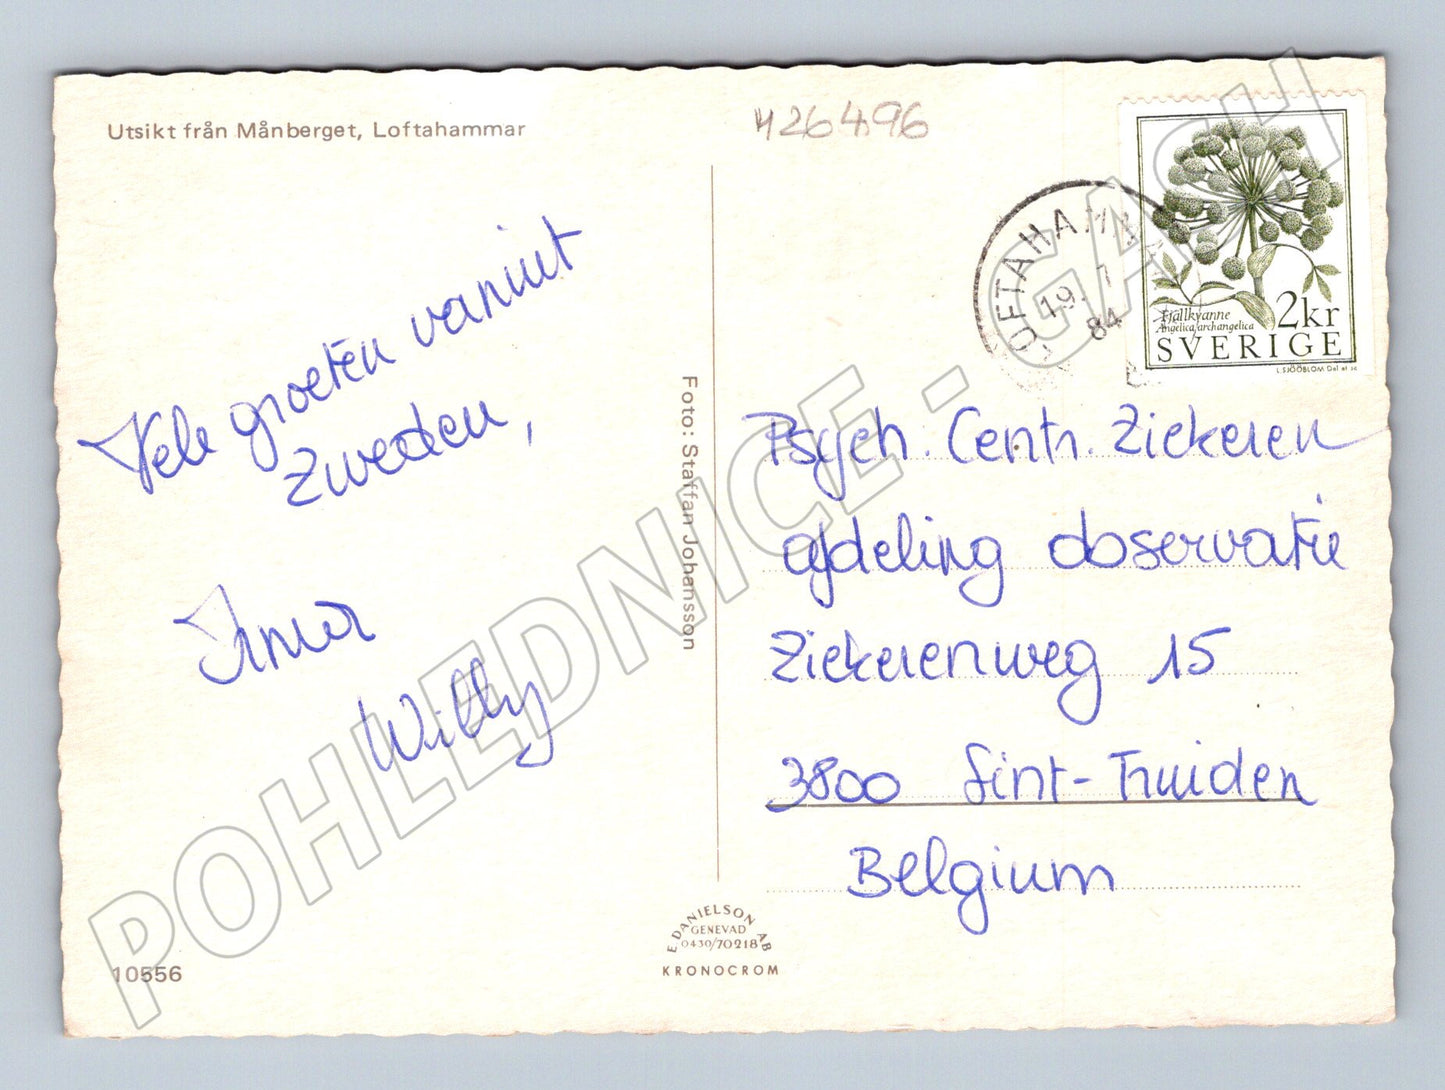 Utsikt från Månberget, Loftahammar
426496
LOFTAHAMMA
19. 1
84
Fjällkvanne
Angelica archangelica
2kr
SVERIGE
L.SJÖÖBLOM Del et sc
Vele groeten vanuit
Zweden,
Irma
Willy
Foto: Staffan Johansson
Psych. Centr. Ziekeren
afdeling observatie
Ziekerenweg 15
3800 Sint-Truiden
Belgium
E. DANIELSON AB
GENEVAD
0430/70218
KRONOCROM
10556
POHLEDNICE - GASH